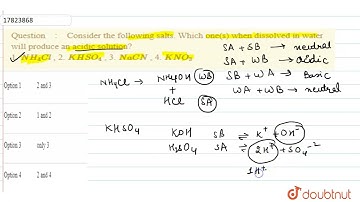 17823868
Question : Consider the following salts. Which one(s) when dissolved in water
will produce an acidic solution?
✓ NH₄Cl , 2. KHSO₄ , 3. NaCN , 4. KNO₃
SA + SB → neutral
SA + WB → acidic
SB + WA → Basic
WA + WB → neutral
NH₄Cl → NH₄OH (WB)
+
HCl (SA)
KHSO₄
KOH SB ⇌ K⁺ + OH⁻
H₂SO₄ SA ⇌ 2H⁺ + SO₄⁻²
1H⁺
Option 1 2 and 3
Option 2 1 and 2
Option 3 only 3
Option 4 2 and 4
doubtnut